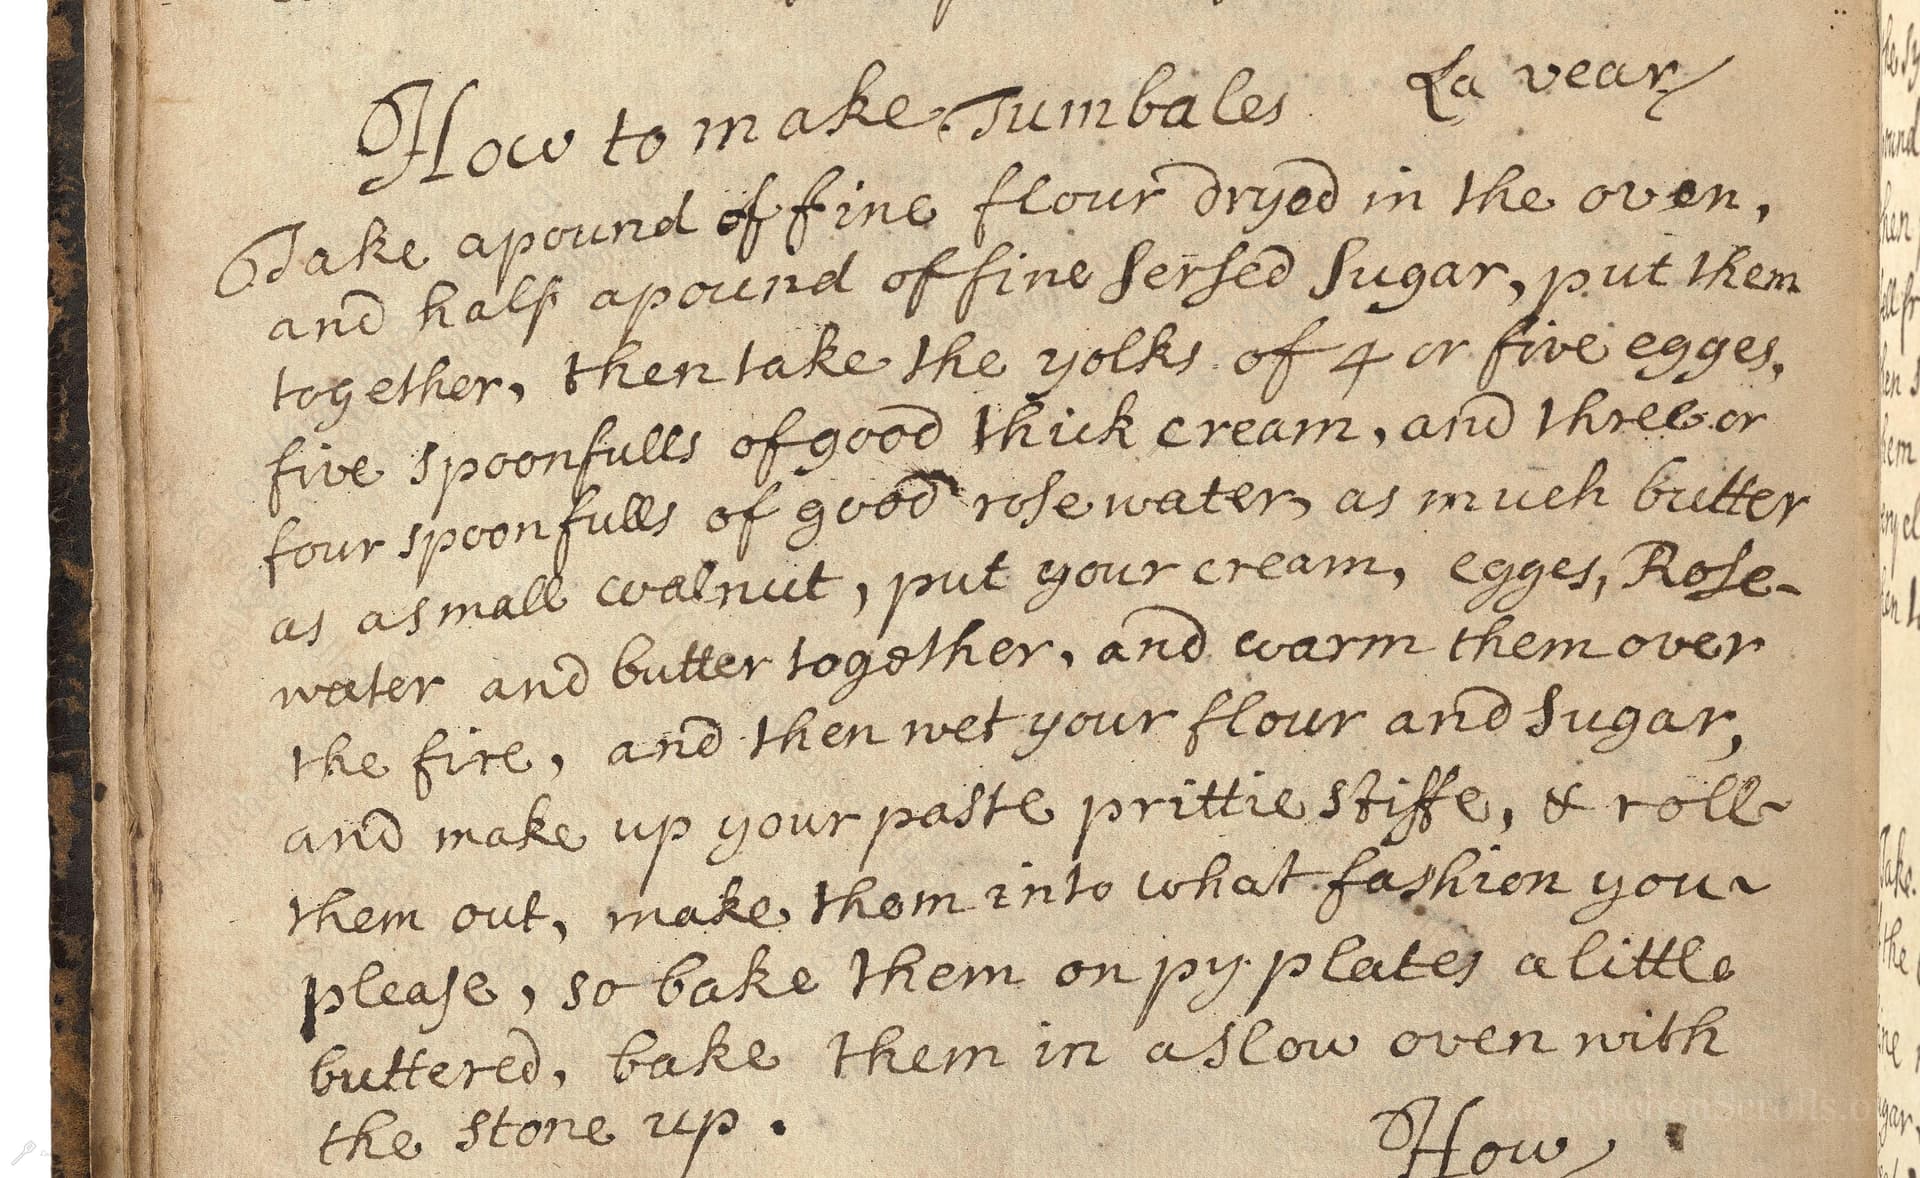 How to make Jumbales La vear
Take apound of fine flour dryed in the oven,
and half apound of fine sersed sugar, put them
together, then take the yolks of 4 or five egges,
five spoonfulls of good thick cream, and three or
four spoonfulls of good rose water, as much butter
as a small walnut, put your cream, egges, Rose-
water and butter together, and warm them over
the fire, and then wet your flour and sugar,
and make up your paste prittie stiffe, & roll
them out, make them into what fashion you
please, so bake them on py plates a little
buttered, bake them in a slow oven with
the stone up.
How